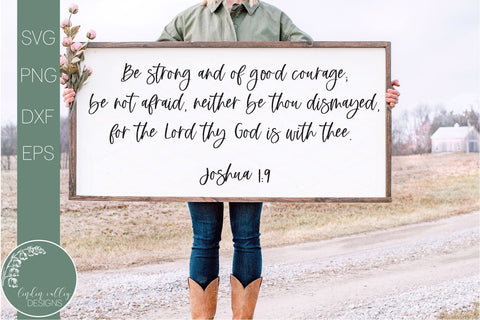 SVG
PNG
DXF
EPS
Be strong and of good courage;
be not afraid, neither be thou dismayed,
for the Lord thy God is with thee.
Joshua 1:9
linden valley
DESIGNS